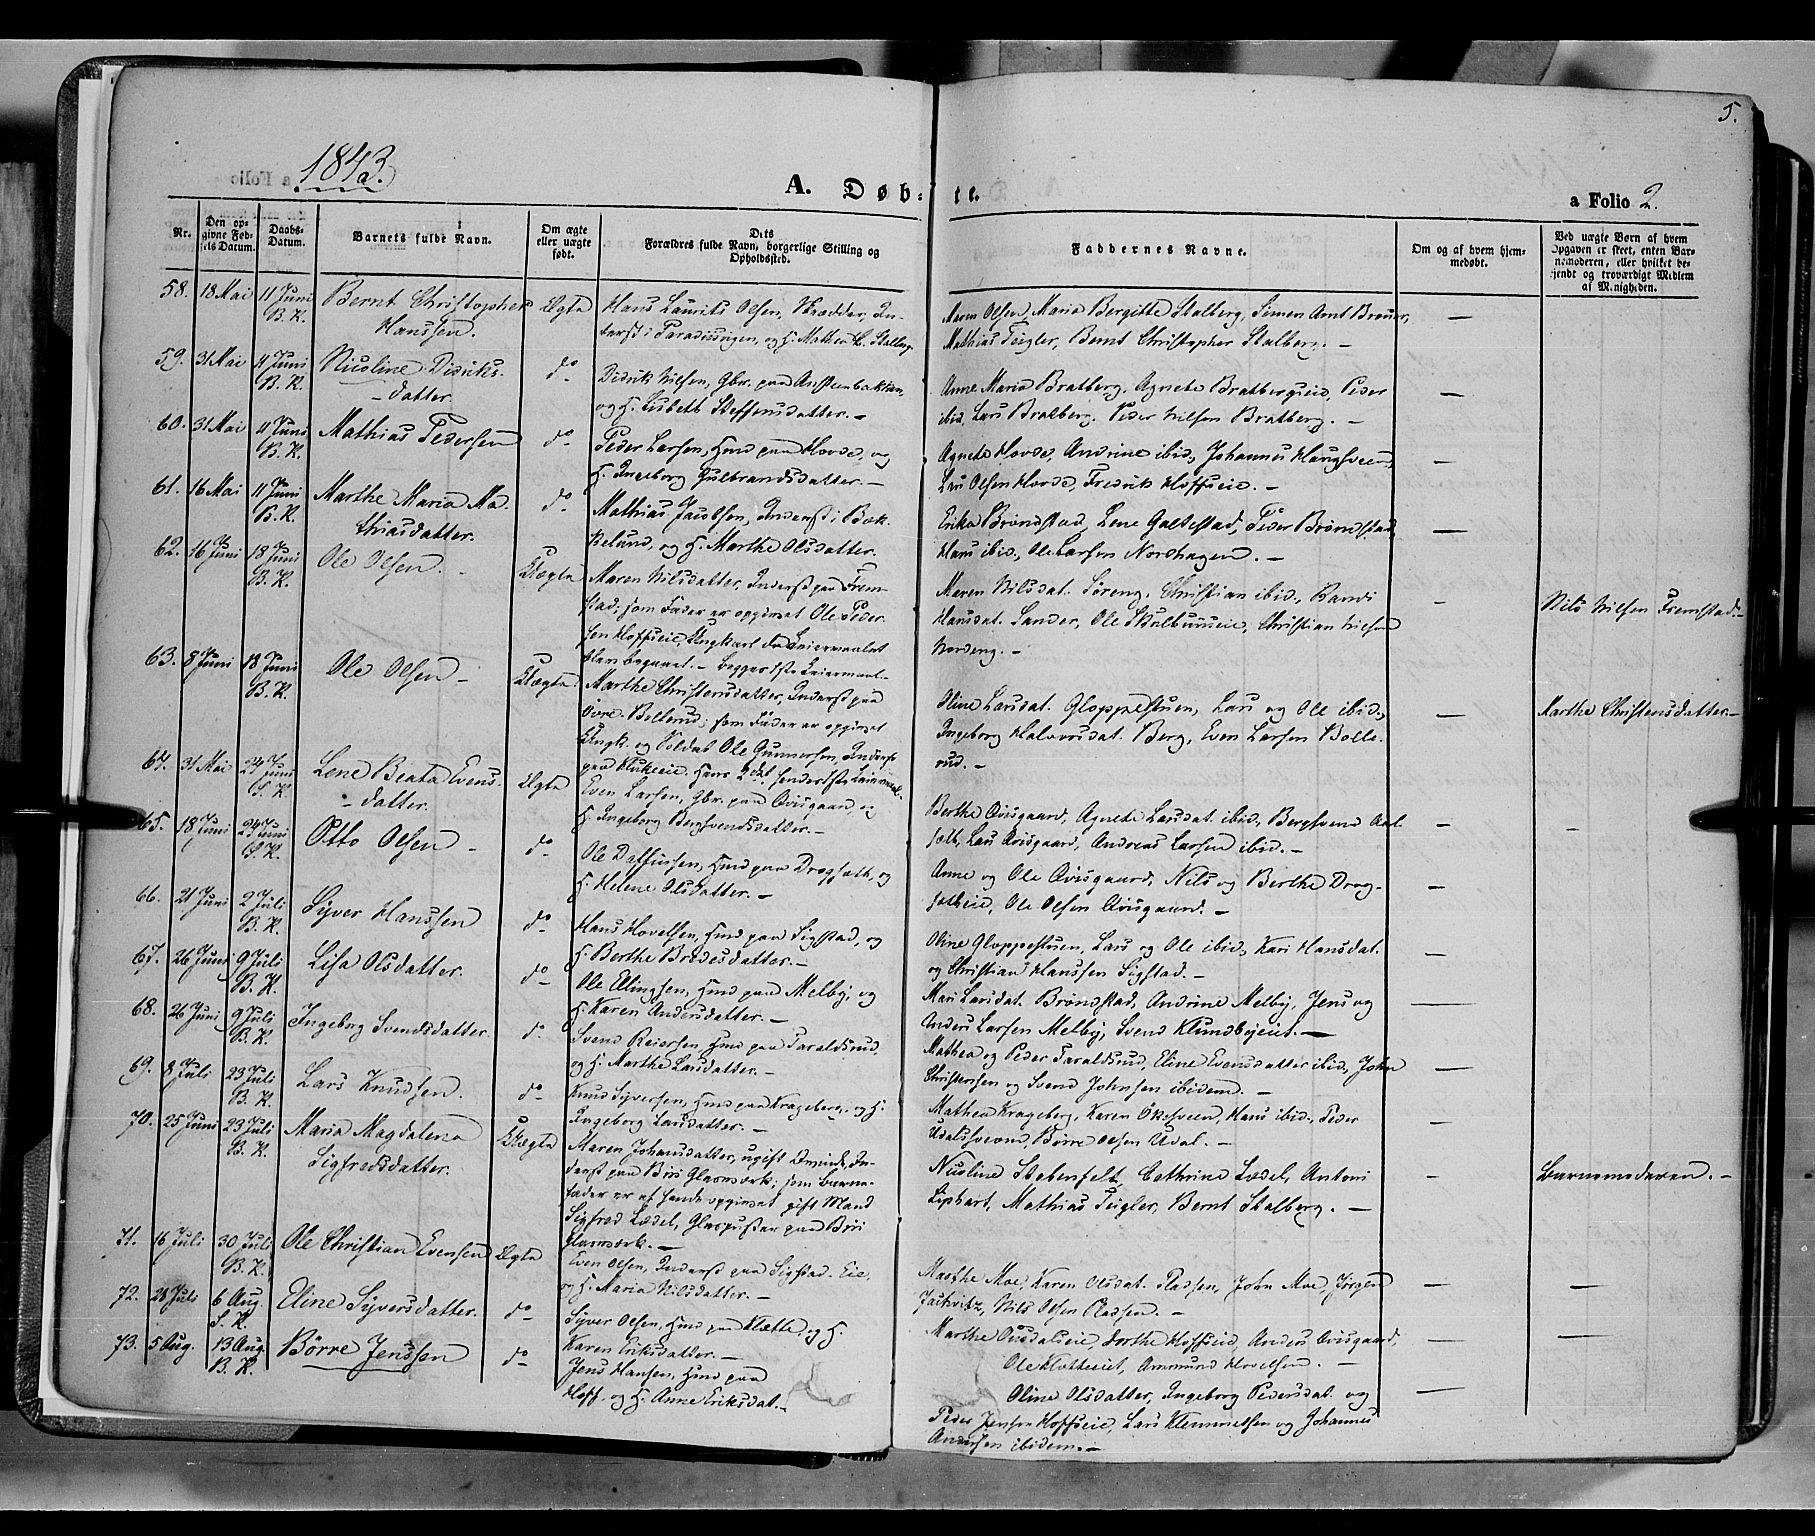 5.
1843.
A. Døb-
te.
a Folio 2.
Nr.
Den opgivne Fødsels Datum.
Daabs-Datum.
Barnets fulde Navn.
Om ægte eller uægte født.
Dets Forældres fulde Navn, borgerlige Stilling og Opholdssted.
Faddernes Navne.
Om og af hvem hjemmedøbt.
Ved uægte Børn af hvem Opgaven er skeet, enten Barnemoderen, eller hvilket bekjendt og troværdigt Medlem af Menigheden.
58. 18 Mai 11 Juni B. K. Bernt Christopher Hanssen. Ægte
Hans Laurits Olsen, Skrædder, In-
derst i Paradisungen, og H. Mathea
Maren Olsen, Maria Bergitte Stalberg, Simen Arnt Breuer,
Mathias Teigler, Bernt Christopher Stalberg. —
59. 31 Mai 11 Juni B. K. Nicoline Didriks-
datter. do
Didrik Nilsen, Gbr. paa Austenbakken,
og H. Lisbeth Steffensdatter. —
Anne Maria Bratberg, Agnete Bratbergeie, Peder
ibid, Lars Bratberg, Peder Nilsen Bratberg. —
60. 31 Mai 11 Juni B. K. Mathias Pedersen do
Peder Larsen, Hmd paa Hovde, og
H. Ingeborg Gulbrandsdatter. —
Agnete Hovde, Andrine ibid, Johannes Haugsveen,
Lars Olsen Hovde, Fredrik Hoffseie. —
61. 16 Mai 11 Juni B. K. Marthe Maria Ma-
thiasdatter. do
Mathias Jacobsen, Inderst i Bæk-
kelund, og H. Marthe Olsdatter.
Erika Brøndstad, Lene Galtestad, Peder Brøndstad,
Hans ibid, Ole Larsen Nordhagen. —
62. 16 Juni 18 Juni B. K. Ole Olsen. Uægte
Maren Nilsdatter, Inderst paa Frem-
stad; som Fader er opgivet Ole Peder-
sen Hoffseie, Ungkarl da Leiermaalet
blev begaaet. — Begges 1ste Leiermaal. —
Maren Nilsdat. Søreng, Christian ibid, Randi
Hansdat. Sander, Ole Skulbuseie, Christian Nilsen
Nordeng. —
Nils Nilsen Fremstad. —
63. 8 Juni 18 Juni B. K. Ole Olsen — Uægte
Marthe Christensdatter, Inderst paa
øvre Bollerud; som Fader er opgivet
Ungk. og Soldat Ole Gunnersen, Inderst
paa Klukeie. Hans 2det, hendes 1ste Leiermaal.
Oline Larsdat. Gloppestuen, Lars og Ole ibid,
Ingeborg Halvorsdat. Berg, Even Larsen Bolle-
rud. —
Marthe Christensdatter. —
64. 31 Mai 24 Juni B. K. Lene Beata Evens-
datter. Ægte
Even Larsen, Gbr. paa Qvisgaard, og
H. Ingeborg Bergsvendsdatter. —
Berthe Qvisgaard, Agnete Larsdat. ibid, Bergsvend Aal-
seth, Lars Qvisgaard, Andreas Larsen ibid. —
65. 18 Juni 24 Juni Otto Olsen — do
Ole Dathussen, Hmd paa Dragseth, og
H. Helene Olsdatter. —
Anne og Ole Qvisgaard, Nils og Berthe Drag-
setheie, Ole Olsen Qvisgaard. —
66. 21 Juni 2 Juli B. K. Syver Hanssen do
Hans Hovelsen, Hmd paa Sigstad, og
H. Berthe Bredesdatter. —
Oline Gloppestuen, Lars og Ole ibid, Kari Hansdat.
og Christian Hanssen Sigstad. —
67. 26 Juni 9 Juli B. K. Lisa Olsdatter. do
Ole Ellingsen, Hmd paa Melby, og
H. Karen Andersdatter. —
Mari Larsdat. Brøndstad, Andrine Melby, Jens og
Anders Larsen Melby, Svend Klundbyeiet. —
68. 26 Juni 9 Juli B. K. Ingeborg Svendsdatter. do
Svend Reiersen, Hmd paa Taraldsrud,
og H. Marthe Larsdatter. —
Mathea og Peder Taraldsrud, Eline Evensdatter ibid, John
Christensen og Svend Johnsen ibidem. —
69. 8 Juli 23 Juli B. K. Lars Knudsen. do
Knud Syversen, Hmd paa Krageberg, og H.
Ingeborg Larsdatter. —
Mathea Krageberg, Karen Øksveen, Hans ibid, Peder
Udalsveen, Børre Olsen Udal. —
70. 25 Juni 23 Juli B. K. Maria Magdalena
Sigfredsdatter. Uægte
Maren Johansdatter, ugift Qvinde, In-
derst paa Biri Glasværk; som Barne-
fader er af hende opgivet gift Mand
Sigfred Lædel, Glaspuster paa Biri
Glasværk. —
Nicoline Stebenfelt, Cathrine Lædel, Antoni
Liphart, Mathias Teigler, Bernt Stalberg. —
Barnemoderen. —
71. 16 Juli 30 Juli B. K. Ole Christian Evensen Ægte
Even Olsen, Inderst paa Sigstad Eie,
og H. Maria Nilsdatter. —
Marthe Moe, Karen Olsdat. Pladsen, John Moe, Jørgen
Jackvitz, Nils Olsen Pladsen. —
72. 28 Juli 6 Aug. S. K. Eline Syversdatter. do
Syver Olsen, Hmd paa Klætte, og H.
Karen Eriksdatter. —
Marthe Onsdalseie, Dorthe Hoffseie, Anders Qvisgaard,
Ole Kletteeiet, Ammund Hovelsen. —
73. 5 Aug. 13 Aug. B. K. Børre Jenssen do
Jens Hansen, Hmd paa
Hoff, og H. Anne Eriksdat. —
Oline Olsdatter, Ingeborg Pedersdat. og
Peder Jensen Hoffseie, Lars Klemmetsen og Johannes
Andersen ibidem. —